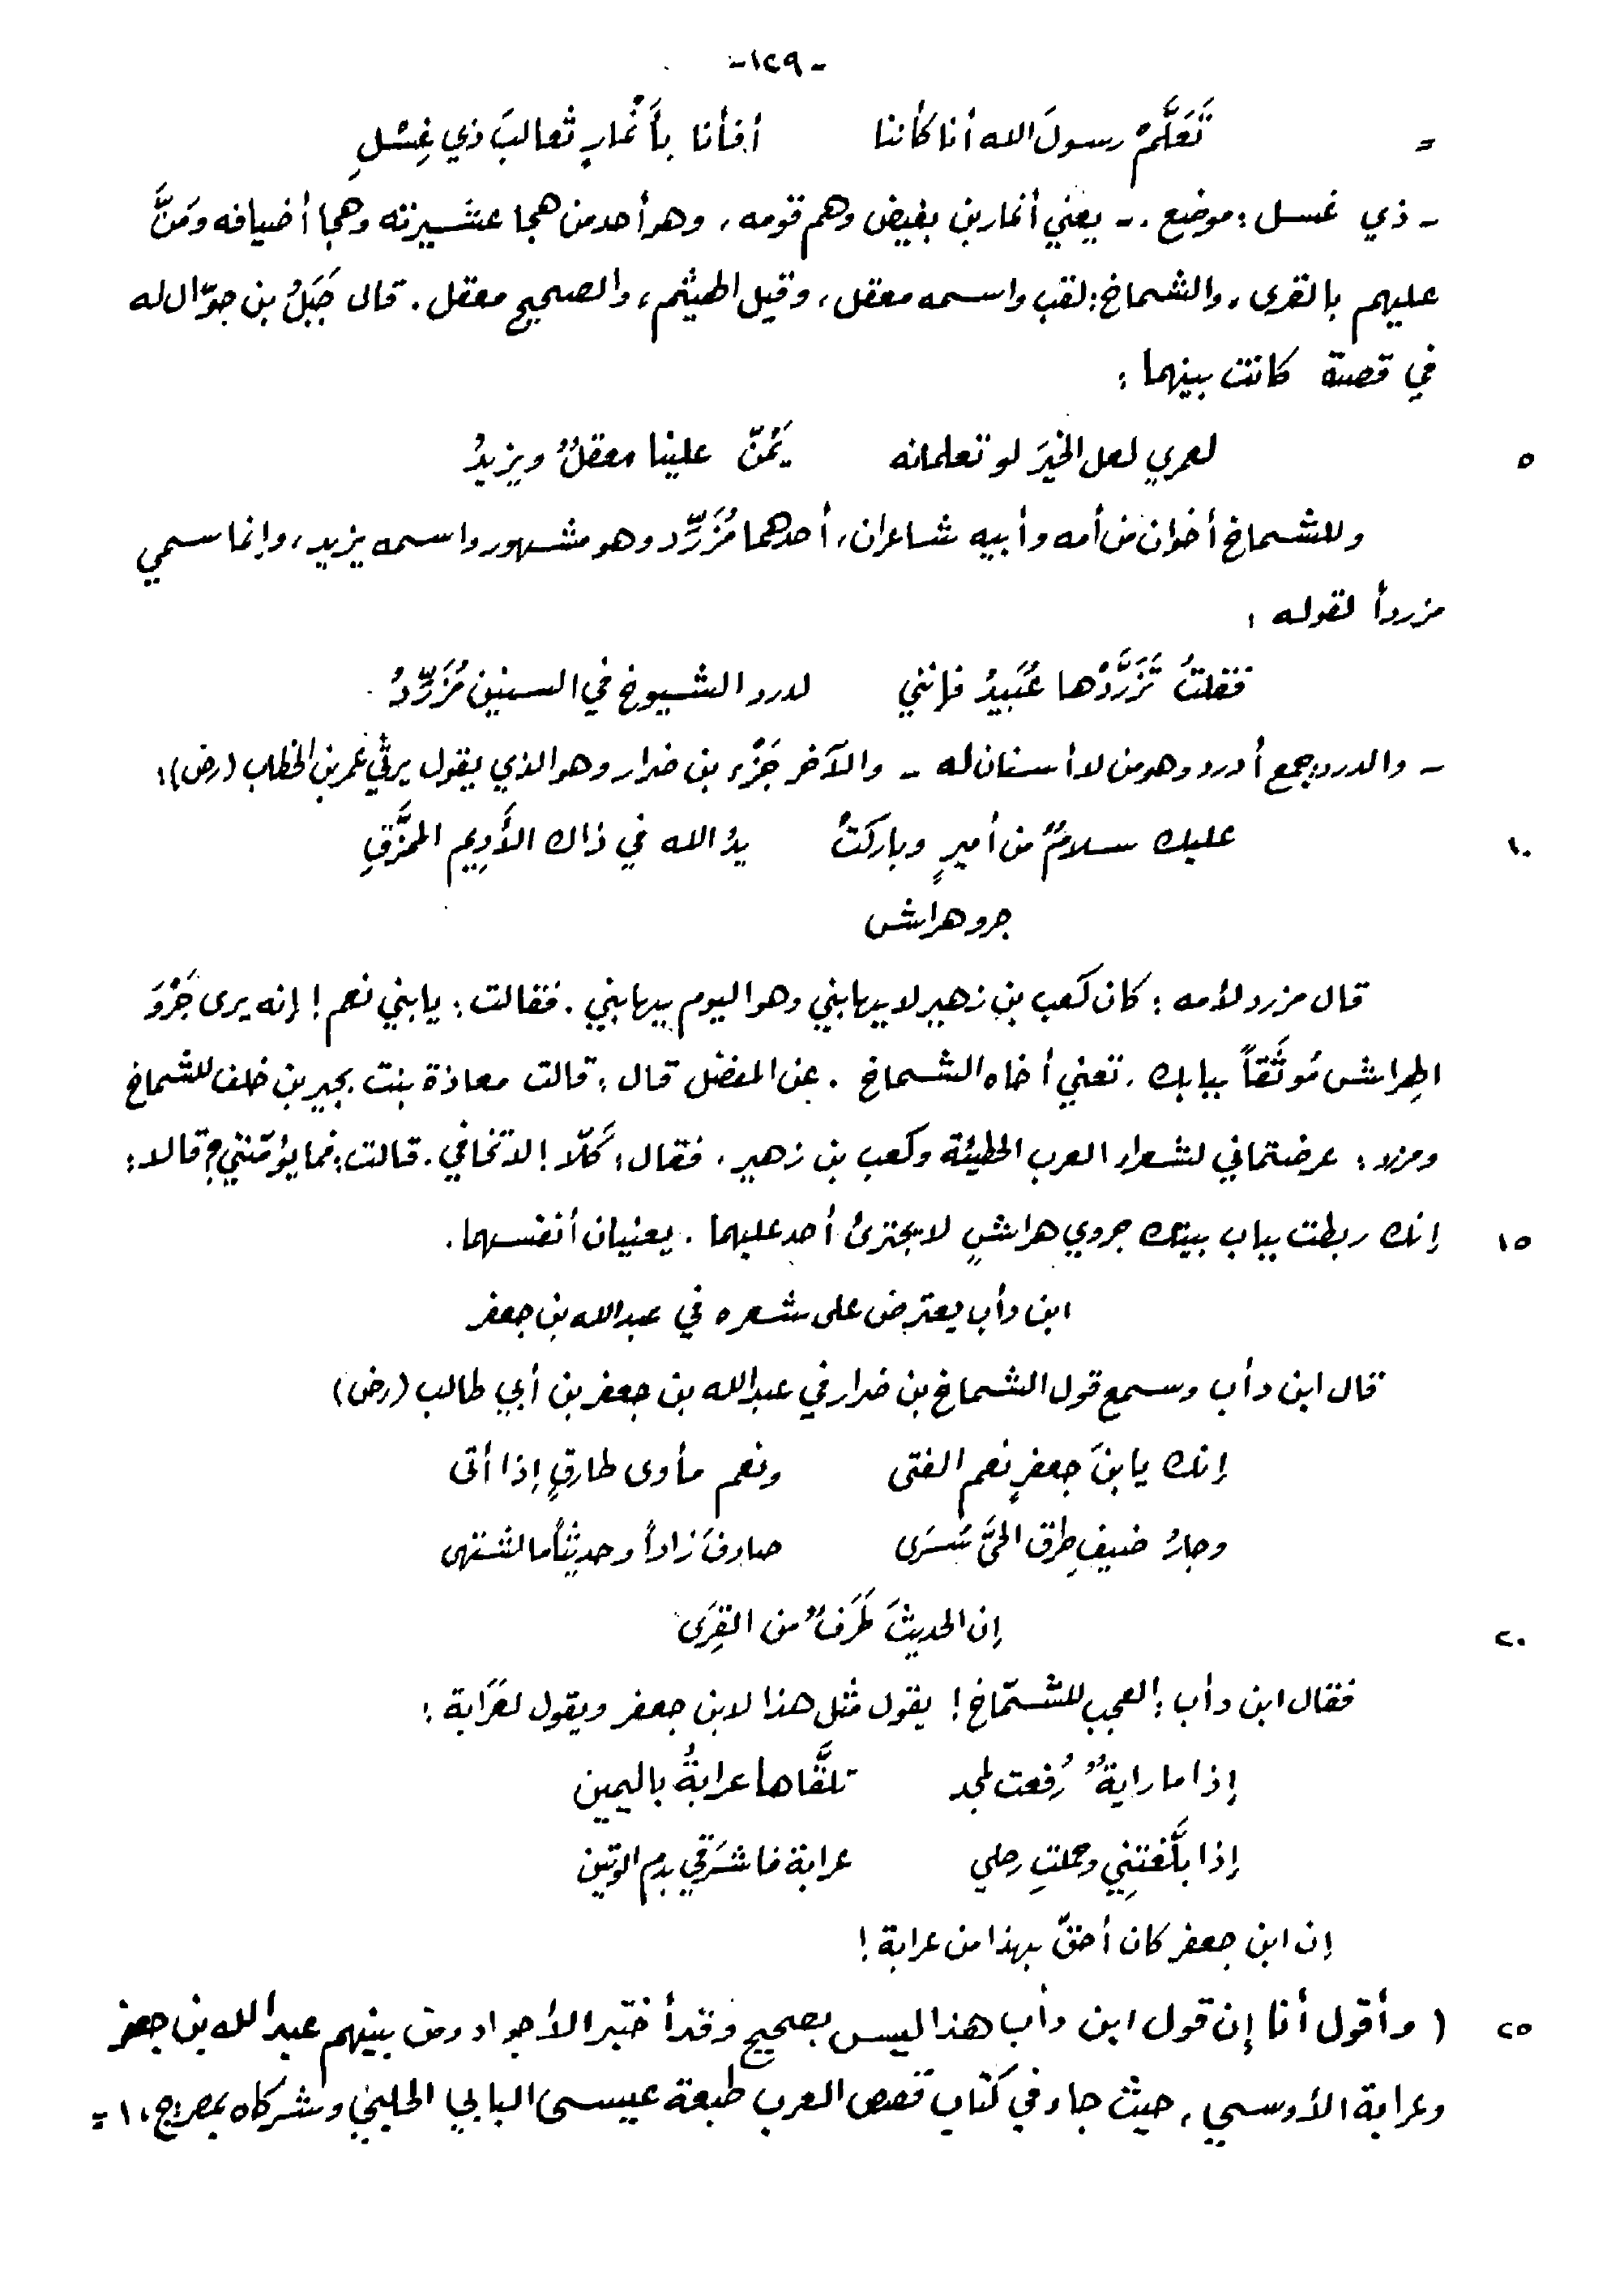 -١٢٩-
= تَعَلَّمْ رسولَ الله أنا كأننا أفأنا بأَنْمارٍ ثعالبَ ذي غِسْلِ
- ذي غسل : موضع .- يعني أنمار بن بغيض وهم قومه ، وهو أحد من هجا عشيرته وهجا أضيافه ومَنَّ
عليهم بالقرى ، والشماخ : لقب واسمه معقل ، وقيل الهيثم ، والصحيح معقل . قال جَبَلُ بن جوّال له
في قصة كانت بينهما :
٥ لعمري لعل الخيرَ لو تعلمانه يَمُنّ علينا معقلٌ ويزيدُ
وللشماخ أخوان من أمه وأبيه شاعران ، أحدهما مُزَرِّد وهو مشهور واسمه يزيد ، وإنما سمي
مزرداً لقوله :
فقلتُ تَزَرَّدْها عُبَيدُ فإنني لدرد الشيوخ في السنين مُزَرِّدُ
- والدرد : جمع أدرد وهو من لا أسنان له - والآخر جَزْء بن ضرار وهو الذي يقول يرثي عمر بن الخطاب (رض) :
١٠ عليك سلامٌ من أميرٍ وباركَتْ يدُ الله في ذاك الأَدِيم الممزَّقِ
جرو هراش
قال مزرد لأمه : كان كعب بن زهير لا يهابني وهو اليوم يهابني . فقالت : يا بني نعم ! إنه يرى جَرْوَ
الهِراش مُوثَقاً ببابك . تعني أخاه الشماخ . عن المفضل قال : قالت معاذة بنت بجير بن خلف للشماخ
ومزرد : عرضتماني لشعراء العرب الحطيئة وكعب بن زهير . فقال : كَلّا ! لا تخافي . قالت : فما يؤمّنني ؟ قالا :
١٥ إنك ربطت بباب بيتك جروي هراشٍ لا يجترئ أحد عليهما . يعنيان أنفسهما .
ابن دأب يعترض على شعره في عبد الله بن جعفر
قال ابن دأب وسمع قول الشماخ بن ضرار في عبد الله بن جعفر بن أبي طالب (رض)
إنك يا بنَ جعفرٍ نعم الفتى ونعم مأوى طارقٍ إذا أتى
وجارُ ضيفٍ طرق الحيَّ سَرَى صادفَ زاداً وحديثاً ما اشتهى
٢٠ إن الحديثَ طَرَفٌ من القِرَى
فقال ابن دأب : العجب للشمّاخ ! يقول مثل هذا لابن جعفر ويقول لعَرَابة :
إذا ما رايةٌ رُفعت لمجد تلقَّاها عرابةُ باليمين
إذا بلَّغتِنِي وحملتِ رحلي عرابة فاشرَقي بدم الوتين
إن ابن جعفر كان أحقّ بهذا من عرابة !
٢٥ ( وأقول أنا إن قول ابن دأب هذا ليس بصحيح وقد أختبر الأجواد ومن بينهم عبد الله بن جعفر
وعرابة الأوسي ، حيث جاء في كتاب قصص العرب طبعة عيسى البابي الحلبي وشركاه بمصر ج ، ١ =